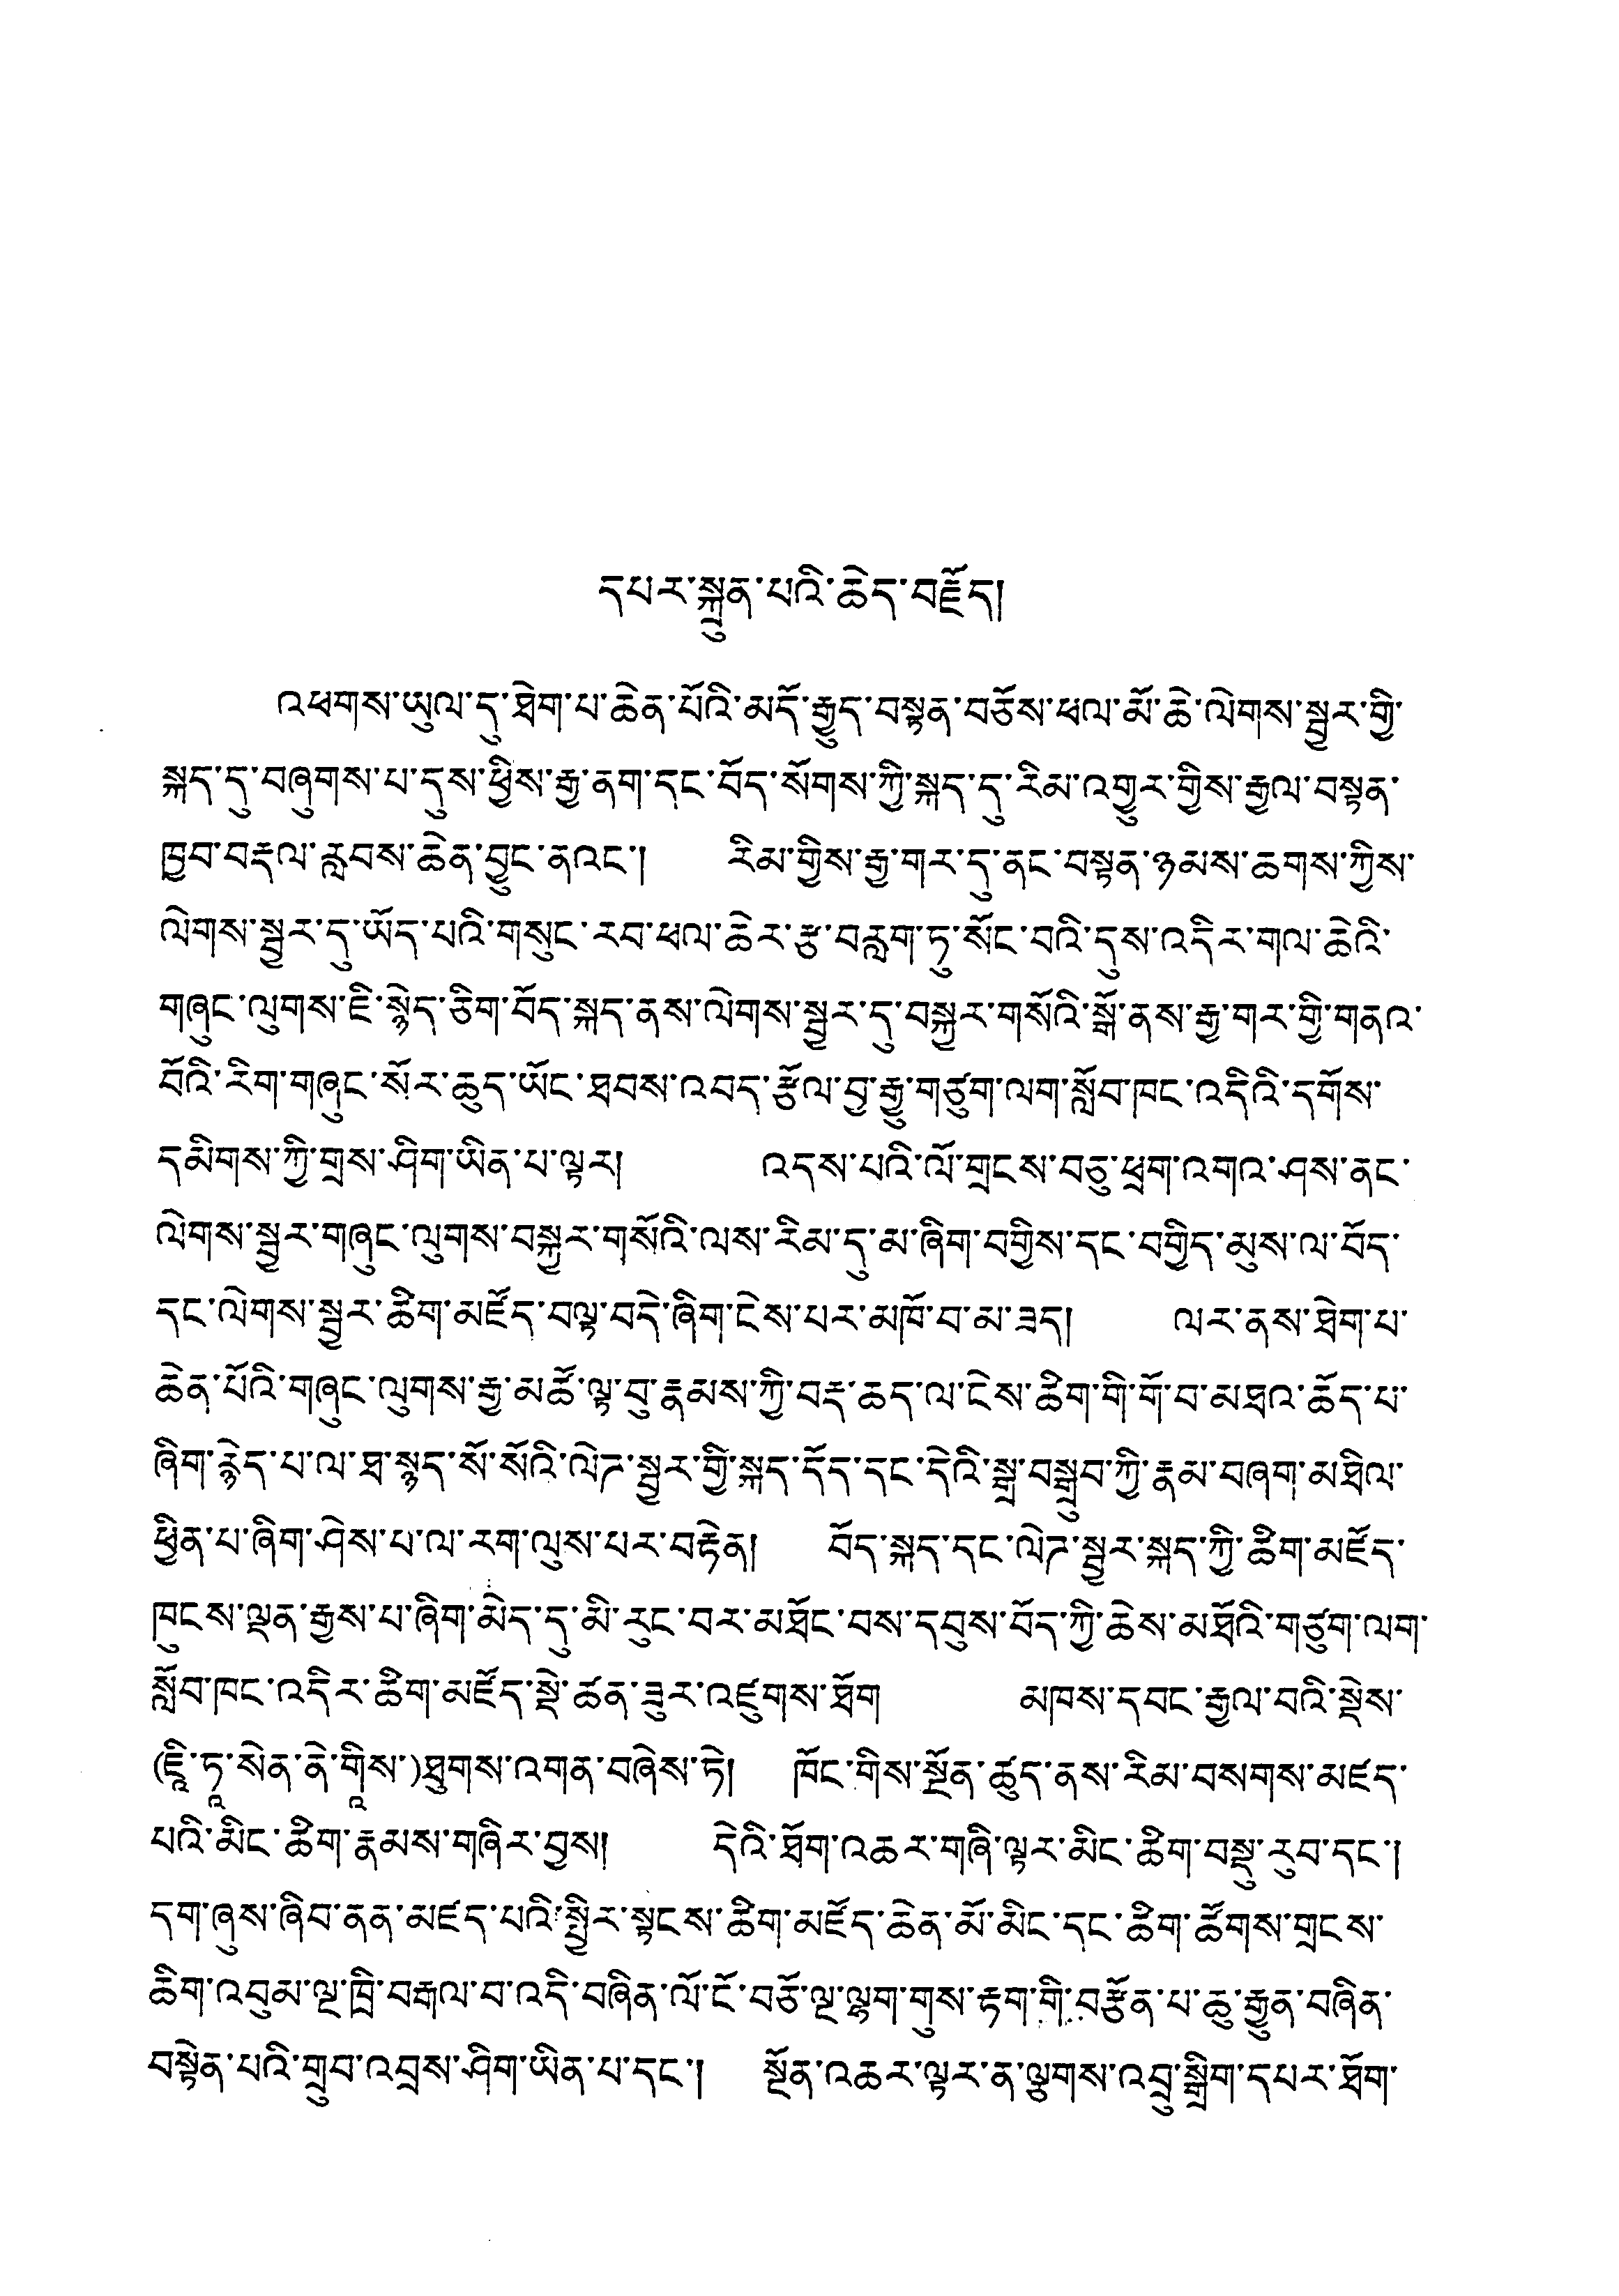 དཔར་སྐྲུན་པའི་ཆེད་བརྗོད།
འཕགས་ཡུལ་དུ་ཐེག་པ་ཆེན་པོའི་མདོ་རྒྱུད་བསྟན་བཅོས་ཕལ་མོ་ཆེ་ལེགས་སྦྱར་གྱི་
སྐད་དུ་བཞུགས་པ་དུས་ཕྱིས་རྒྱ་ནག་དང་བོད་སོགས་ཀྱི་སྐད་དུ་རིམ་འགྱུར་གྱིས་རྒྱལ་བསྟན་
ཁྱབ་བརྡལ་རླབས་ཆེན་བྱུང་ནའང་། རིམ་གྱིས་རྒྱ་གར་དུ་ནང་བསྟན་ཉམས་ཆགས་ཀྱིས་
ལེགས་སྦྱར་དུ་ཡོད་པའི་གསུང་རབ་ཕལ་ཆེར་རྩ་བརླག་ཏུ་སོང་བའི་དུས་འདིར་གལ་ཆེའི་
གཞུང་ལུགས་ཇི་སྙེད་ཅིག་བོད་སྐད་ནས་ལེགས་སྦྱར་དུ་བསྐྱར་གསོའི་སྒོ་ནས་རྒྱ་གར་གྱི་གནའ་
བོའི་རིག་གཞུང་སོར་ཆུད་ཡོང་ཐབས་འབད་རྩོལ་བྱ་རྒྱུ་གཙུག་ལག་སློབ་ཁང་འདིའི་དགོས་
དམིགས་ཀྱི་གྲས་ཤིག་ཡིན་པ་ལྟར། འདས་པའི་ལོ་གྲངས་བཅུ་ཕྲག་འགའ་ཤས་ནང་
ལེགས་སྦྱར་གཞུང་ལུགས་བསྐྱར་གསོའི་ལས་རིམ་དུ་མ་ཞིག་བགྱིས་དང་བགྱིད་མུས་ལ་བོད་
དང་ལེགས་སྦྱར་ཚིག་མཛོད་བལྟ་བདེ་ཞིག་ངེས་པར་མཁོ་བ་མ་ཟད། ལར་ནས་ཐེག་པ་
ཆེན་པོའི་གཞུང་ལུགས་རྒྱ་མཚོ་ལྟ་བུ་རྣམས་ཀྱི་བརྡ་ཆད་ལ་ངེས་ཚིག་གི་གོ་བ་མཐའ་ཆོད་པ་
ཞིག་རྙེད་པ་ལ་ཐ་སྙད་སོ་སོའི་ལེཊ་སྦྱར་གྱི་སྐད་དོད་དང་དེའི་སྒྲ་བསྒྲུབ་ཀྱི་རྣམ་བཞག་མཐིལ་
ཕྱིན་པ་ཞིག་ཤེས་པ་ལ་རག་ལུས་པར་བརྟེན། བོད་སྐད་དང་ལེཊ་སྦྱར་སྐད་ཀྱི་ཚིག་མཛོད་
ཁུངས་ལྡན་རྒྱས་པ་ཞིག་མེད་དུ་མི་རུང་བར་མཐོང་བས་དབུས་བོད་ཀྱི་ཆེས་མཐོའི་གཙུག་ལག་
སློབ་ཁང་འདིར་ཚིག་མཛོད་སྡེ་ཚན་ཟུར་འཛུགས་ཐོག མཁས་དབང་རྒྱལ་བའི་སྡེས་
(ཇཱི་ཏཱ་སེན་ནེ་གཱིས་)ཐུགས་འགན་བཞེས་ཏེ། ཁོང་གིས་སྔོན་ཚུད་ནས་རིམ་བསགས་མཛད་
པའི་མིང་ཚིག་རྣམས་གཞིར་བྱས། དེའི་ཐོག་འཆར་གཞི་ལྟར་མིང་ཚིག་བསྡུ་རུབ་དང་།
དག་ཞུས་ཞིབ་ནན་མཛད་པའི་སྤྱིར་སྟངས་ཚིག་མཛོད་ཆེན་མོ་མིང་དང་ཚིག་ཚོགས་གྲངས་
ཆིག་འབུམ་ལྔ་ཁྲི་བརྒལ་བ་འདི་བཞིན་ལོ་ངོ་བཅོ་ལྔ་ལྷག་གུས་རྟག་གི་བརྩོན་པ་ཆུ་རྒྱུན་བཞིན་
བསྟེན་པའི་གྲུབ་འབྲས་ཤིག་ཡིན་པ་དང་། སྔོན་འཆར་ལྟར་ན་ལྕགས་འབྲུ་སྒྲིག་དཔར་ཐོག་